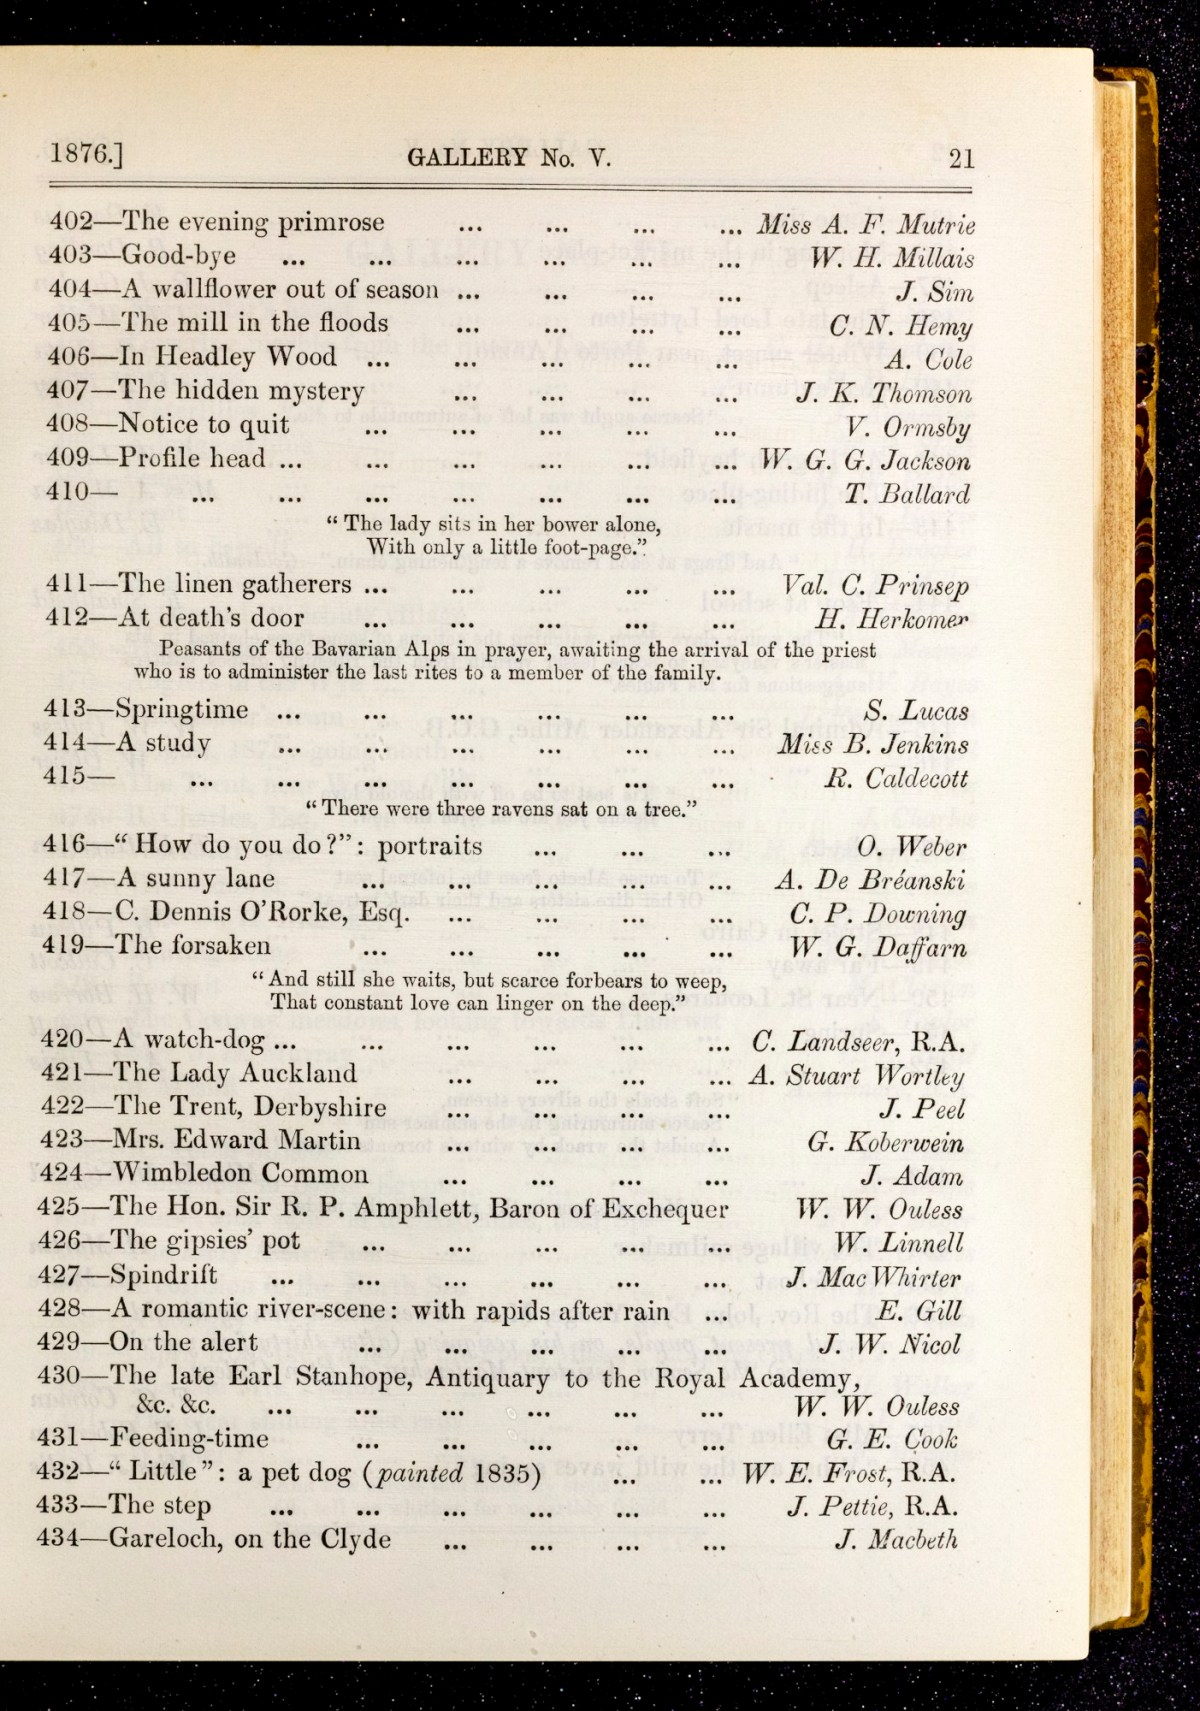 1876.] GALLERY No. V. 21
402—The evening primrose ... ... ... ... Miss A. F. Mutrie
403—Good-bye ... ... ... ... ... ... W. H. Millais
404—A wallflower out of season ... ... ... ... J. Sim
405—The mill in the floods ... ... ... ... C. N. Hemy
406—In Headley Wood ... ... ... ... ... A. Cole
407—The hidden mystery ... ... ... ... J. K. Thomson
408—Notice to quit ... ... ... ... ... V. Ormsby
409—Profile head ... ... ... ... ... ... W. G. G. Jackson
410— ... ... ... ... ... ... ... T. Ballard
“ The lady sits in her bower alone,
With only a little foot-page.”
411—The linen gatherers ... ... ... ... ... Val. C. Prinsep
412—At death’s door ... ... ... ... ... H. Herkomer
Peasants of the Bavarian Alps in prayer, awaiting the arrival of the priest
who is to administer the last rites to a member of the family.
413—Springtime ... ... ... ... ... ... S. Lucas
414—A study ... ... ... ... ... ... Miss B. Jenkins
415— ... ... ... ... ... ... ... R. Caldecott
“ There were three ravens sat on a tree.”
416—“ How do you do ?” : portraits ... ... ... O. Weber
417—A sunny lane ... ... ... ... ... A. De Bréanski
418—C. Dennis O’Rorke, Esq. ... ... ... ... C. P. Downing
419—The forsaken ... ... ... ... ... W. G. Daffarn
“ And still she waits, but scarce forbears to weep,
That constant love can linger on the deep.”
420—A watch-dog ... ... ... ... ... ... C. Landseer, R.A.
421—The Lady Auckland ... ... ... ... A. Stuart Wortley
422—The Trent, Derbyshire ... ... ... ... J. Peel
423—Mrs. Edward Martin ... ... ... ... G. Koberwein
424—Wimbledon Common ... ... ... ... J. Adam
425—The Hon. Sir R. P. Amphlett, Baron of Exchequer W. W. Ouless
426—The gipsies’ pot ... ... ... ... ... W. Linnell
427—Spindrift ... ... ... ... ... ... J. MacWhirter
428—A romantic river-scene : with rapids after rain ... E. Gill
429—On the alert ... ... ... ... ... J. W. Nicol
430—The late Earl Stanhope, Antiquary to the Royal Academy,
&c. &c. ... ... ... ... ... ... W. W. Ouless
431—Feeding-time ... ... ... ... ... G. E. Cook
432—“ Little ” : a pet dog (painted 1835) ... ... W. E. Frost, R.A.
433—The step ... ... ... ... ... ... J. Pettie, R.A.
434—Gareloch, on the Clyde ... ... ... ... J. Macbeth